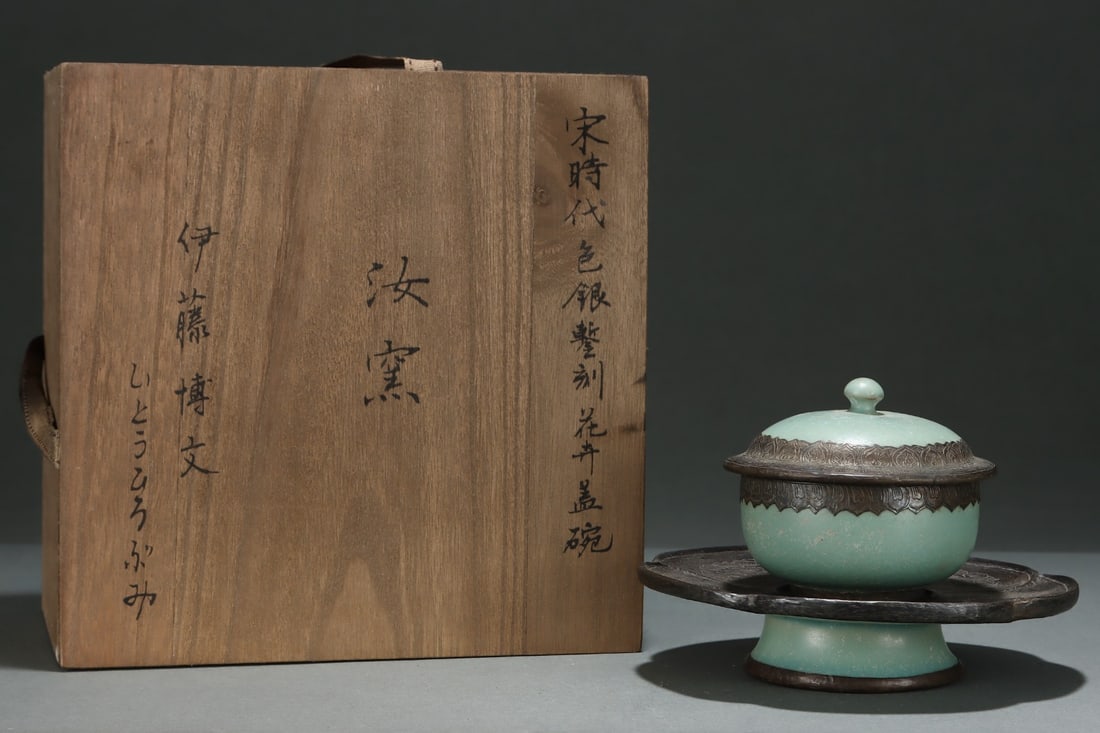 宋時代色銀鏨刻花卉盖碗
汝窯
伊藤博文
いとうひろぶみ